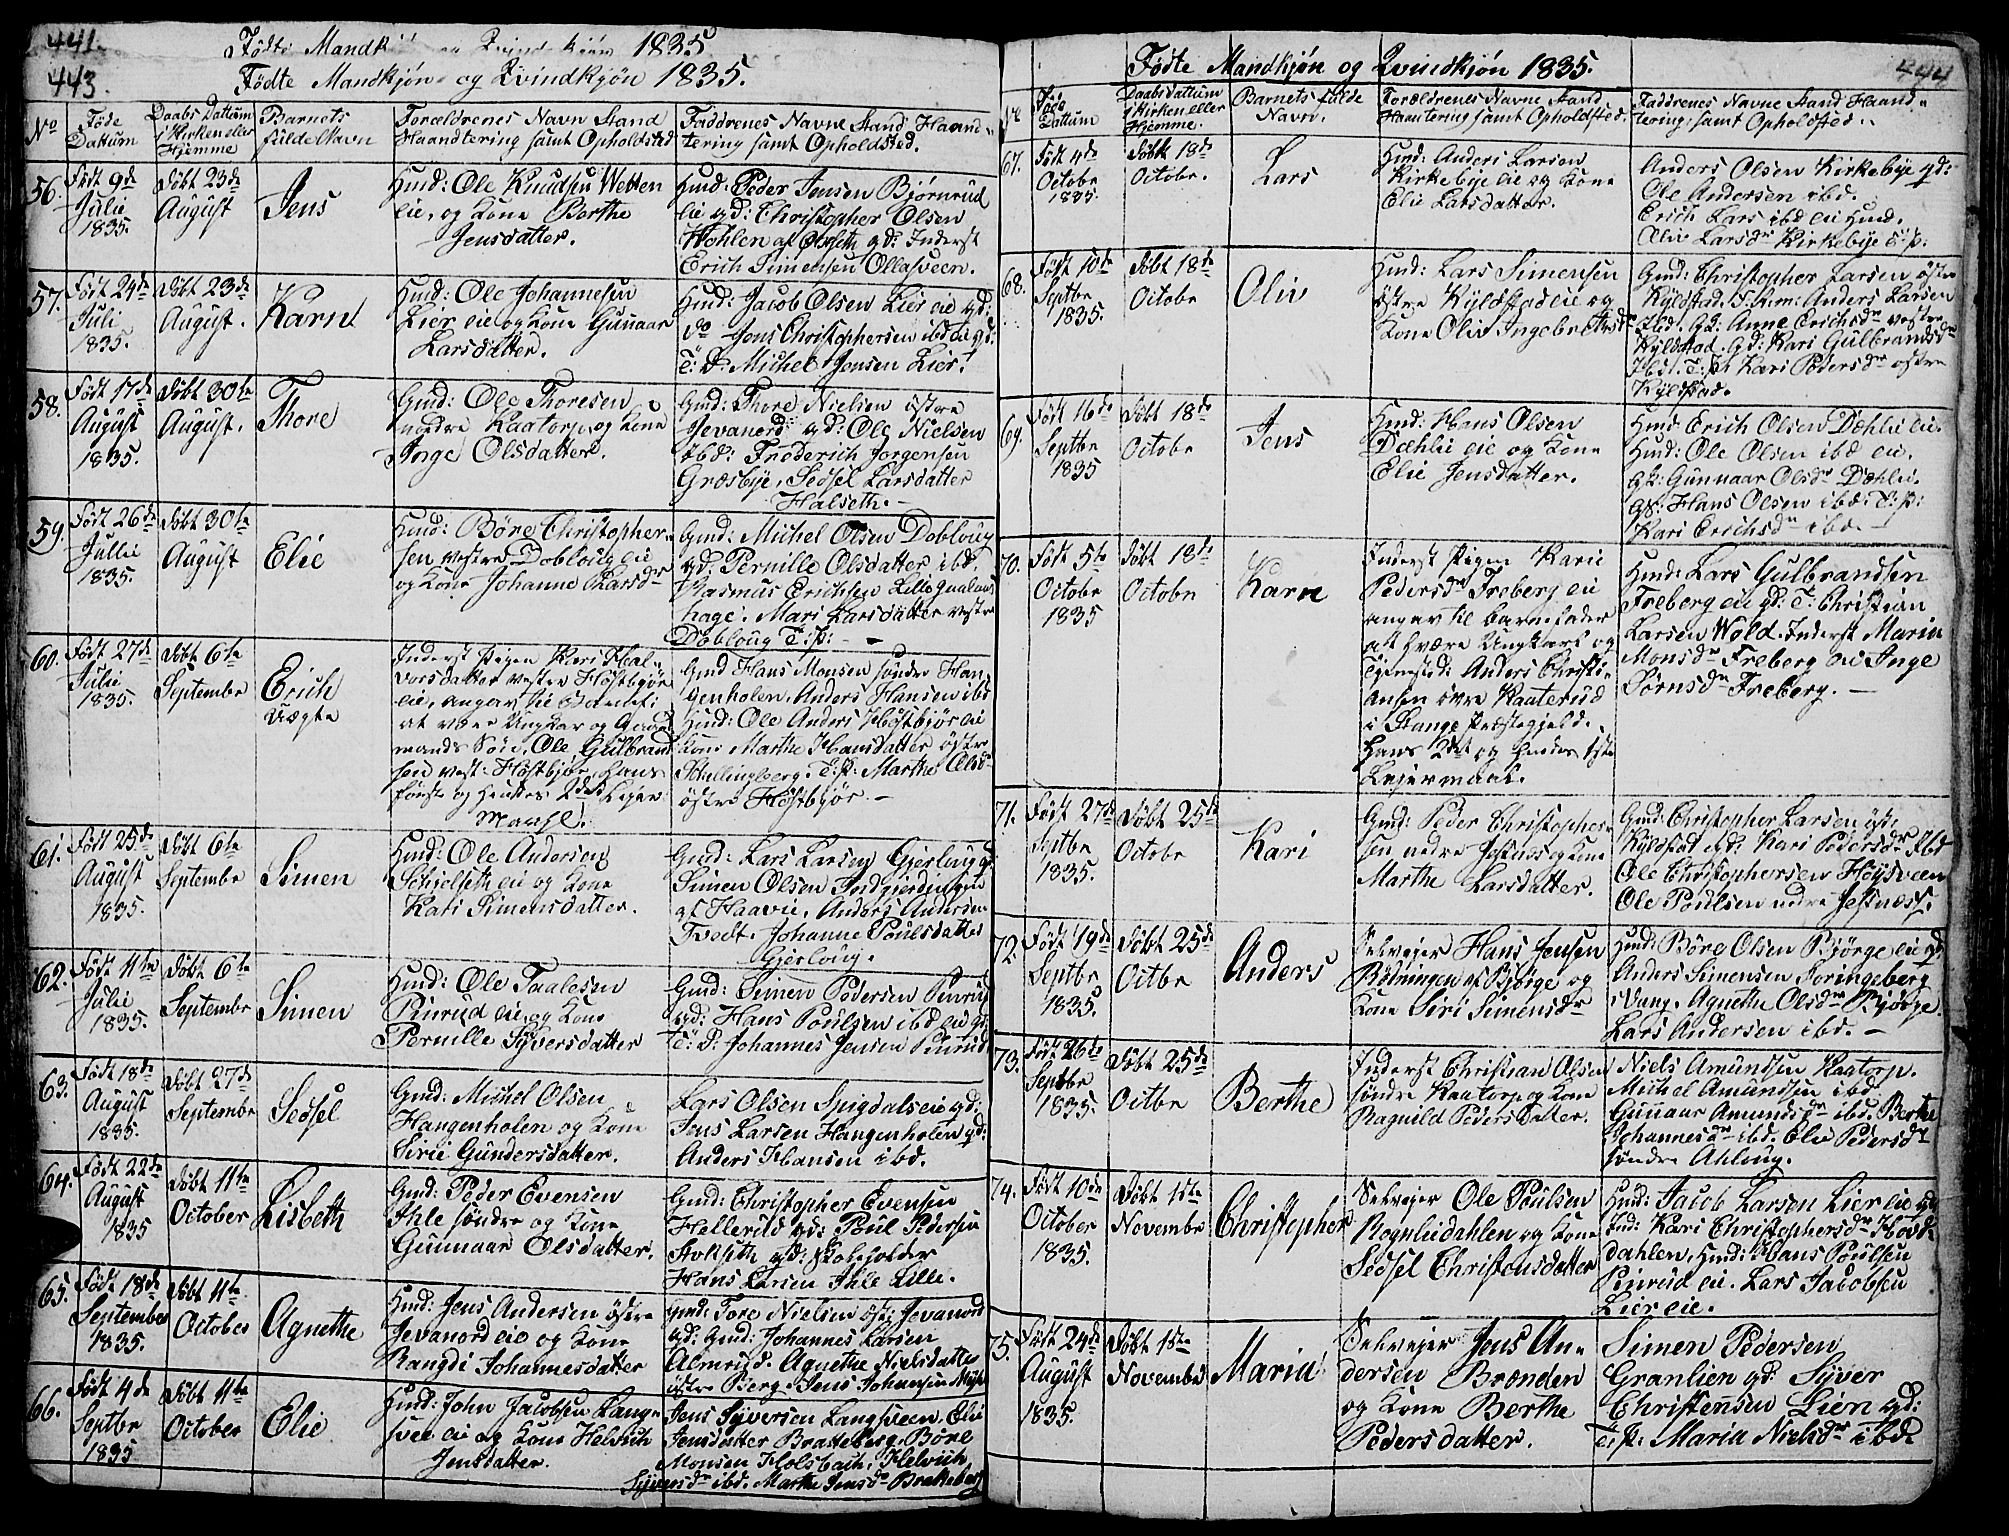 441.
Födte Mandkj og Qvindekjön 1835
443.
Födte Mandkjön og Qvindkjön 1835.
No
Föde Dattum
Daabs Dattum i Kirken eller Hjemme
Barnets fulde Navn
Forældrenes Navn Stand Haandtering samt Opholdsted
Faddrenes Navne Stand Haandtering samt Opholdsted.
56.
Födt 9de Julie 1835.
Döbt 23de August
Jens
Hmd: Ole Knudsen Wetten
eie, og Kone Berthe
Jensdatter.
Hmd: Peder Jensen Björnerud
eie gd: Christopher Olsen
Inderst
Erich Simensen Ollasveen.
57.
Födt 24de Juli 1835.
Döbt 23de August.
Karn
Hmd: Ole Johannesen
Lier eie og Kone Gunnaar
Larsdatter.
Hmd: Jacob Olsen Lier eie gd:
Do Jens Christophersen ibd eie gd:
T: D. Michel Jensen Lier.
58.
Födt 17de August 1835.
Döbt 30te August.
Thore
Gmd: Ole Thoresen
nordre Kaatorp og Kone
Inge Olsdatter.
Gmd: Thore Nielsen östre
Jevanord gd: Ole Nielsen
ibd: Frederich Jörgensen
Græsbye, Sedsel Larsdatter
Halseth.
59.
Födt 26de Julie 1835.
Döbt 30te August
Elie
Hmd: Böre Christopher-
sen vestre Dobloug eie
og Kone Johanne Larsdr
Gmd: Michel Olsen Dobloug
gd: Pernille Olsdatter ibd.
Rasmus Erichsen Lille
hage. Mari Larsdatter vestre
Dobloug T: p: —
60.
Födt 27de Julie 1835.
Döbt 6te Septembr
Erich
uægte
Inderst Pigen Kari Hal-
vorsdatter vestre Höstbjör
eie, angav til Barnef:
at være Ungkar og Gaard-
mands Sön, Ole Gulbrand
sen vest: Höstbjör, hans
förste og hendes 2det Leier-
maal.
Gmd Hans Monsen söndre Han-
genholen, Anders Hansen ibd
Hmd: Ole Anders Höstbjör eie
Kone Marthe Hansdatter östre
T:p: Marthe Olsdr
östre Höstbjör.—
61.
Födt 25de August 1835.
Döbt 6te Septembr
Simen
Hmd: Ole Andersen
Schjelseth eie og Kone
Kari Simensdatter.
Gmd: Lars Larsen Gjerloug gd
Simen Olsen
af Haavie, Anders Andersen
Tvedt, Johanne Poulsdatter
Gjerloug.
62.
Födt 11te Julie 1835.
Döbt 6te Septembr
Simen
Hmd: Ole Taalesen
Pinrud eie, og Kone
Pernille Syversdatter
Gmd: Simen Pedersen Pinrud
gd: Hans Poulsen ibd eie gd:
T: D: Johannes Jensen Pinrud
63.
Födt 18de August 1835.
Döbt 27de Septembr
Sedsel
Gmd: Michel Olsen
Hangenholen og Kone
Sirie Gundersdatter.
Lars Olsen Spigdals eie gd:
Jens Larsen Hangenholen gd:
Anders Hansen ibd.
64.
Födt 22de August 1835
Döbt 11te October
Lisbeth
Gmd: Peder Evensen
Ihle söndre og Kone
Gunnaar Olsdatter.
Gmd: Christopher Evensen
Hellerud gd: Poul Pedersen
gd: Skoleholder
Hans Larsen Ihle Lille.
65.
Födt 18de September 1835.
Döbt 11te October
Agnethe
Hmd: Jens Andersen östre
Jevanord eie og Kone
Rangdi Johannesdatter
Gmd: Tore Nielsen östre Jevanord
gd: Gmd: Johannes Larsen
Almrud. Agnethe Nielsdatter
östre Berg. Jens Johansen
66.
Födt 4de Septbr 1835
Döbt 11te October
Elie
Hmd: John Jacobsen Lang-
svee eie og Kone Helvich
Jensdatter.
Jens Syversen Langsveen. Elie
Jensdatter Bratteberg. Böre
Monsen Holsbach, Helvich
Syversdr ibd. Marthe Jensdr Bratteberg
444
Födte Mandkjön og Qvindkjön 1835.
No
Föde Dattum
Daabsdattum i Kirken eller Hjemme.
Barnets fulde Navn.
Forældrenes Navne Stand Haantering samt Opholdsted.
Faddrenes Navne Stand Haandtering samt Opholdsted.
67.
Födt 4de Octobr 1835.
Döbt 18de Octobr.
Lars
Hmd: Anders Larsen
Kirkebye eie og Kone
Elie Larsdatter.
Anders Olsen Kirkebye gd:
Ole Andersen ibd.
Erich Lars ibd eie Hmd.
Olie Larsdr Kirkebye T:p:
68.
Födt 10de Septbr 1835.
Döbt 18de Octobr
Oliv
Hmd: Lars Simensen
östre Kyldstad eie og
Kone Oliv Ingebretsdr
Gmd: Christopher Larsen östre
Kyldstad. T.K.m: Anders Larsen
Ibd. gk: Anne Erichsdr vestre
Kyldstad. gd: Kari Gulbrandsdr
Ibd. T:p: Kari Pedersdr östre
Kyldstad.
69.
Födt 16de Septbr 1835
Döbt 18de Octobr
Jens
Hmd: Hans Olsen
Dæhlie eie og Kone
Elie Jensdatter.
Hmd Erich Olsen Dæhlie eie.
Hmd: Ole Olsen ibd eie.
gk: Gunnaar Olsdr Dæhlie.
gs: Hans Olsen ibd: T:p:
Kari Erichsdr ibd.—
70.
Födt 5te October 1835
Döbt 18de Octobr
Karn
Inderst Pigen Karie
Pedersdr Freberg eie
angav til Barnefader
at være Ungkarl og
Tjenested: Anders Christi-
ansen övre Kaaterud
i Stange Præstegjeld.
Hans 2det og hendes 1ste
Leiermaal.
Hmd: Lars Gulbrandsen
Freberg eie gd: T: Christian
Larsen Wold. Inderst Marin
Monsdr Freberg eie Inge
Sörnsdr Freberg.—
71.
Födt 27de Septbr 1835.
Döbt 25de Octobr
Kari
Gmd: Peder Christopher-
sen nedre Jesnes og Kone
Marthe Larsdatter.
Gmd: Christopher Larsen öst:
Kyldstad gd: Kari Pedersdr Ibd
Ole Christophersen Höysveen
Ole Poulsen nedre Jesnæss.
72.
Födt 19de Septbr 1835.
Döbt 25de Octbr
Anders
Selveier Hans Jensen
Rödningen af Bjørge og
Kone Siri Simensdr
Hmd: Böre Olsen Bjørge eie gd:
Anders Simensen Foringeberg
i Vang. Agnethe Olsdr Bjørge.
Lars Andersen ibd.—
73.
Födt 26de Septbr 1835.
Döbt 25de Octbr
Berthe
Inderst Christian Olsen
söndre Kaatorp og Kone
Ragnild Pedersdatter.
Niels Amundsen Kaatorp.
Michel Amundsen ibd
Gunnaar Amundsdr ibd. Berthe
Johannesdr ibd. Elie Pedersdr
söndre Ahloug.
74.
Födt 10de October 1835.
Döbt 1ste Novembr
Christopher
Selveier Ole Poulsen
Rognliedahlen og Kone
Sedsel Christensdatter
Hmd: Jacob Larsen Lier eie gd
Ind: Kari Christophersdr
dahlen, Hmd: Hans Poulsen
Pinrud eie. Lars Jacobsen
Lier eie.
75.
Födt 24de August 1835.
Döbt 1ste November
Maria
Selveier Jens An-
dersen Brænden
og Kone Berthe
Pedersdatter.
Simen Pedersen
Granlien gd: Syver
Christensen Lien gd:
T:p: Maria Nielsdr ibd